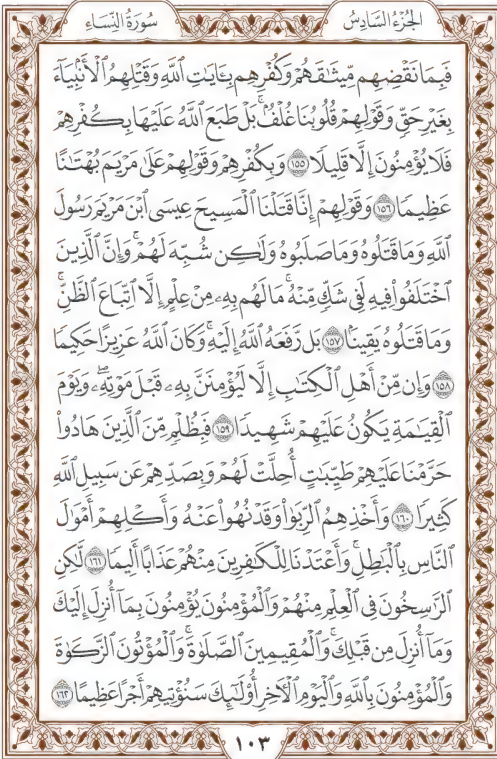 الجُزْءُ السَّادِسُ
سُورَةُ النِّسَاءِ
فَبِمَا نَقْضِهِم مِّيثَٰقَهُمْ وَكُفْرِهِم بِـَٔايَٰتِ ٱللَّهِ وَقَتْلِهِمُ ٱلْأَنۢبِيَآءَ
بِغَيْرِ حَقٍّ وَقَوْلِهِمْ قُلُوبُنَا غُلْفٌۢ ۚ بَلْ طَبَعَ ٱللَّهُ عَلَيْهَا بِكُفْرِهِمْ
فَلَا يُؤْمِنُونَ إِلَّا قَلِيلًا ۝١٥٥ وَبِكُفْرِهِمْ وَقَوْلِهِمْ عَلَىٰ مَرْيَمَ بُهْتَٰنًا
عَظِيمًا ۝١٥٦ وَقَوْلِهِمْ إِنَّا قَتَلْنَا ٱلْمَسِيحَ عِيسَى ٱبْنَ مَرْيَمَ رَسُولَ
ٱللَّهِ وَمَا قَتَلُوهُ وَمَا صَلَبُوهُ وَلَٰكِن شُبِّهَ لَهُمْ ۚ وَإِنَّ ٱلَّذِينَ
ٱخْتَلَفُوا۟ فِيهِ لَفِى شَكٍّ مِّنْهُ ۚ مَا لَهُم بِهِۦ مِنْ عِلْمٍ إِلَّا ٱتِّبَاعَ ٱلظَّنِّ ۚ
وَمَا قَتَلُوهُ يَقِينًۢا ۝١٥٧ بَل رَّفَعَهُ ٱللَّهُ إِلَيْهِ ۚ وَكَانَ ٱللَّهُ عَزِيزًا حَكِيمًا
۝١٥٨ وَإِن مِّنْ أَهْلِ ٱلْكِتَٰبِ إِلَّا لَيُؤْمِنَنَّ بِهِۦ قَبْلَ مَوْتِهِۦ ۖ وَيَوْمَ
ٱلْقِيَٰمَةِ يَكُونُ عَلَيْهِمْ شَهِيدًا ۝١٥٩ فَبِظُلْمٍ مِّنَ ٱلَّذِينَ هَادُوا۟
حَرَّمْنَا عَلَيْهِمْ طَيِّبَٰتٍ أُحِلَّتْ لَهُمْ وَبِصَدِّهِمْ عَن سَبِيلِ ٱللَّهِ
كَثِيرًا ۝١٦٠ وَأَخْذِهِمُ ٱلرِّبَوٰا۟ وَقَدْ نُهُوا۟ عَنْهُ وَأَكْلِهِمْ أَمْوَٰلَ
ٱلنَّاسِ بِٱلْبَٰطِلِ ۚ وَأَعْتَدْنَا لِلْكَٰفِرِينَ مِنْهُمْ عَذَابًا أَلِيمًا ۝١٦١ لَّٰكِنِ
ٱلرَّٰسِخُونَ فِى ٱلْعِلْمِ مِنْهُمْ وَٱلْمُؤْمِنُونَ يُؤْمِنُونَ بِمَآ أُنزِلَ إِلَيْكَ
وَمَآ أُنزِلَ مِن قَبْلِكَ ۚ وَٱلْمُقِيمِينَ ٱلصَّلَوٰةَ ۚ وَٱلْمُؤْتُونَ ٱلزَّكَوٰةَ
وَٱلْمُؤْمِنُونَ بِٱللَّهِ وَٱلْيَوْمِ ٱلْـَٔاخِرِ أُو۟لَٰٓئِكَ سَنُؤْتِيهِمْ أَجْرًا عَظِيمًا ۝١٦٢
١٠٣